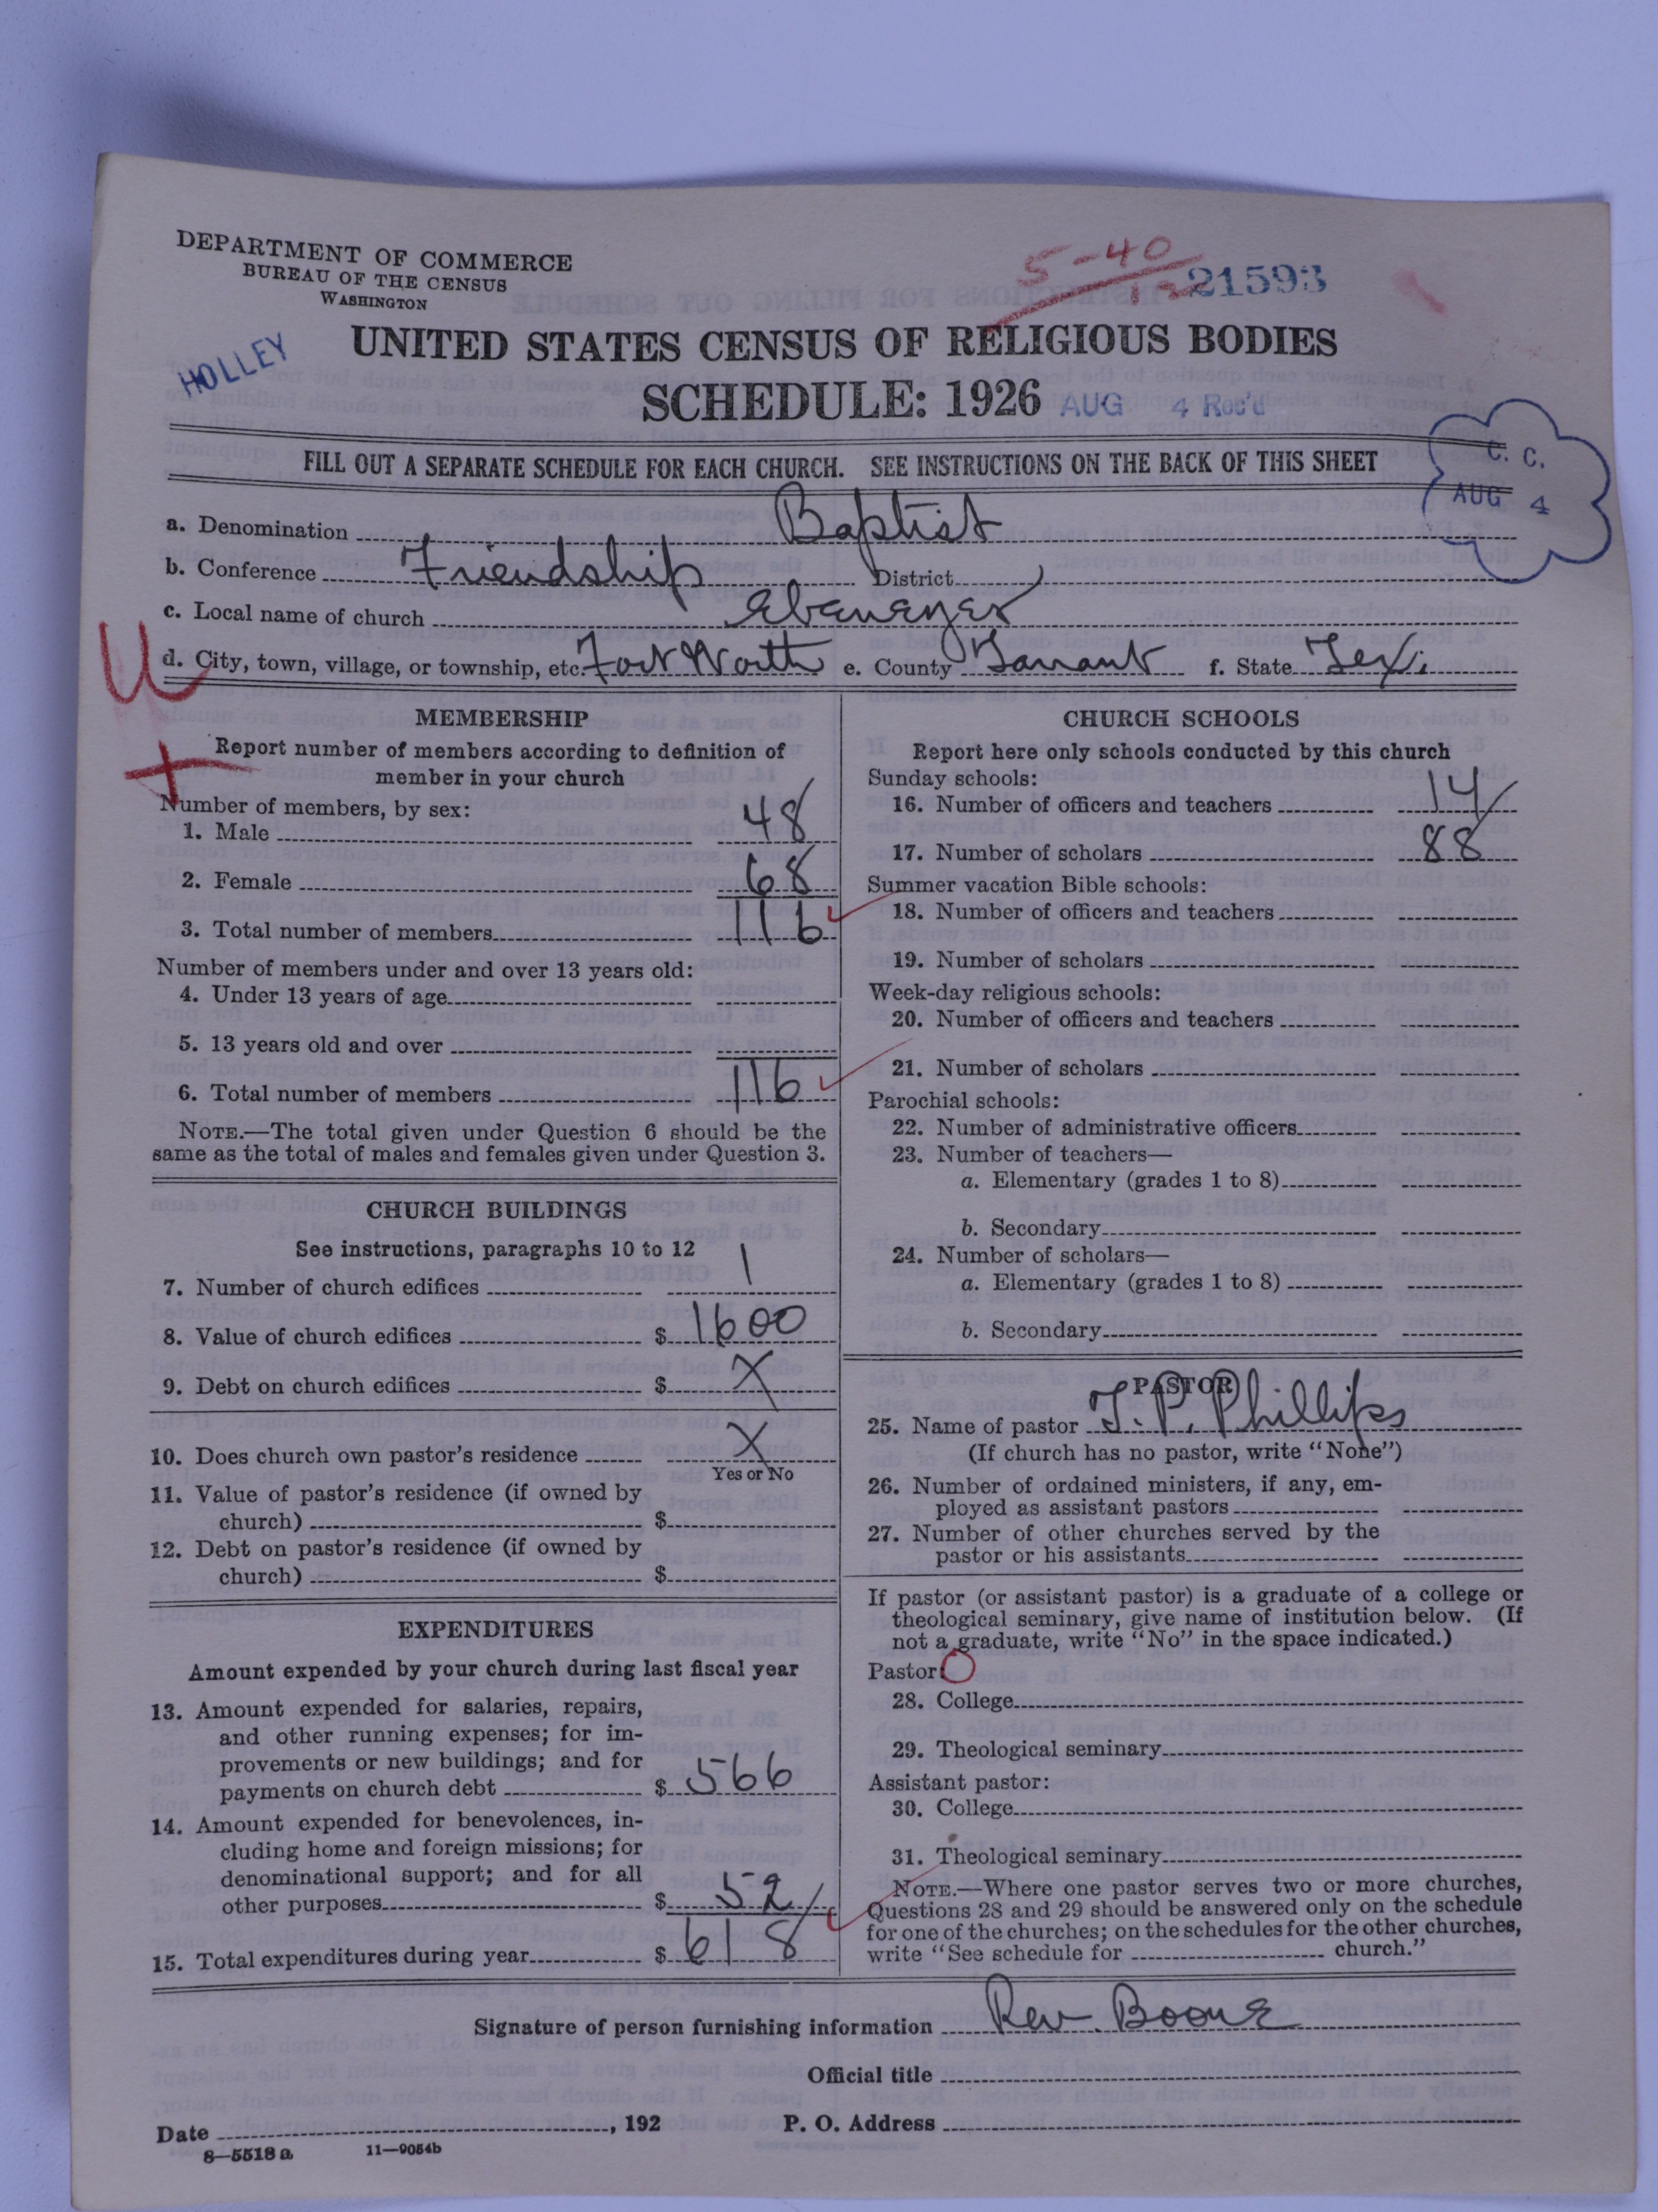 DEPARTMENT OF COMMERCE
BUREAU OF THE CENSUS
WASHINGTON
5-40
21593
HOLLEY
UNITED STATES CENSUS OF RELIGIOUS BODIES
SCHEDULE: 1926
AUG 4 Rec'd
C. C.
AUG 4
FILL OUT A SEPARATE SCHEDULE FOR EACH CHURCH. SEE INSTRUCTIONS ON THE BACK OF THIS SHEET
a. Denomination Baptist
b. Conference Friendship District
c. Local name of church Ebenezer
d. City, town, village, or township, etc. Fort Worth e. County Tarrant f. State Tex.
U
MEMBERSHIP
Report number of members according to definition of
member in your church
Number of members, by sex:
1. Male 48
2. Female 68
3. Total number of members 116
Number of members under and over 13 years old:
4. Under 13 years of age
5. 13 years old and over
6. Total number of members 116
NOTE.—The total given under Question 6 should be the
same as the total of males and females given under Question 3.
CHURCH BUILDINGS
See instructions, paragraphs 10 to 12
7. Number of church edifices 1
8. Value of church edifices $ 1600
9. Debt on church edifices $ X
10. Does church own pastor's residence X
Yes or No
11. Value of pastor's residence (if owned by
church) $
12. Debt on pastor's residence (if owned by
church) $
EXPENDITURES
Amount expended by your church during last fiscal year
13. Amount expended for salaries, repairs,
and other running expenses; for im-
provements or new buildings; and for
payments on church debt $ 566
14. Amount expended for benevolences, in-
cluding home and foreign missions; for
denominational support; and for all
other purposes $ 52
15. Total expenditures during year $ 618
CHURCH SCHOOLS
Report here only schools conducted by this church
Sunday schools:
16. Number of officers and teachers 14
17. Number of scholars 88
Summer vacation Bible schools:
18. Number of officers and teachers
19. Number of scholars
Week-day religious schools:
20. Number of officers and teachers
21. Number of scholars
Parochial schools:
22. Number of administrative officers
23. Number of teachers—
a. Elementary (grades 1 to 8)
b. Secondary
24. Number of scholars—
a. Elementary (grades 1 to 8)
b. Secondary
PASTOR
25. Name of pastor T. P. Phillips
(If church has no pastor, write "None")
26. Number of ordained ministers, if any, em-
ployed as assistant pastors
27. Number of other churches served by the
pastor or his assistants
If pastor (or assistant pastor) is a graduate of a college or
theological seminary, give name of institution below. (If
not a graduate, write "No" in the space indicated.)
Pastor:
28. College
29. Theological seminary
Assistant pastor:
30. College
31. Theological seminary
NOTE.—Where one pastor serves two or more churches,
Questions 28 and 29 should be answered only on the schedule
for one of the churches; on the schedules for the other churches,
write "See schedule for church."
Signature of person furnishing information Rev. Boone
Official title
Date , 192 P. O. Address
8—5518 a 11—9054b